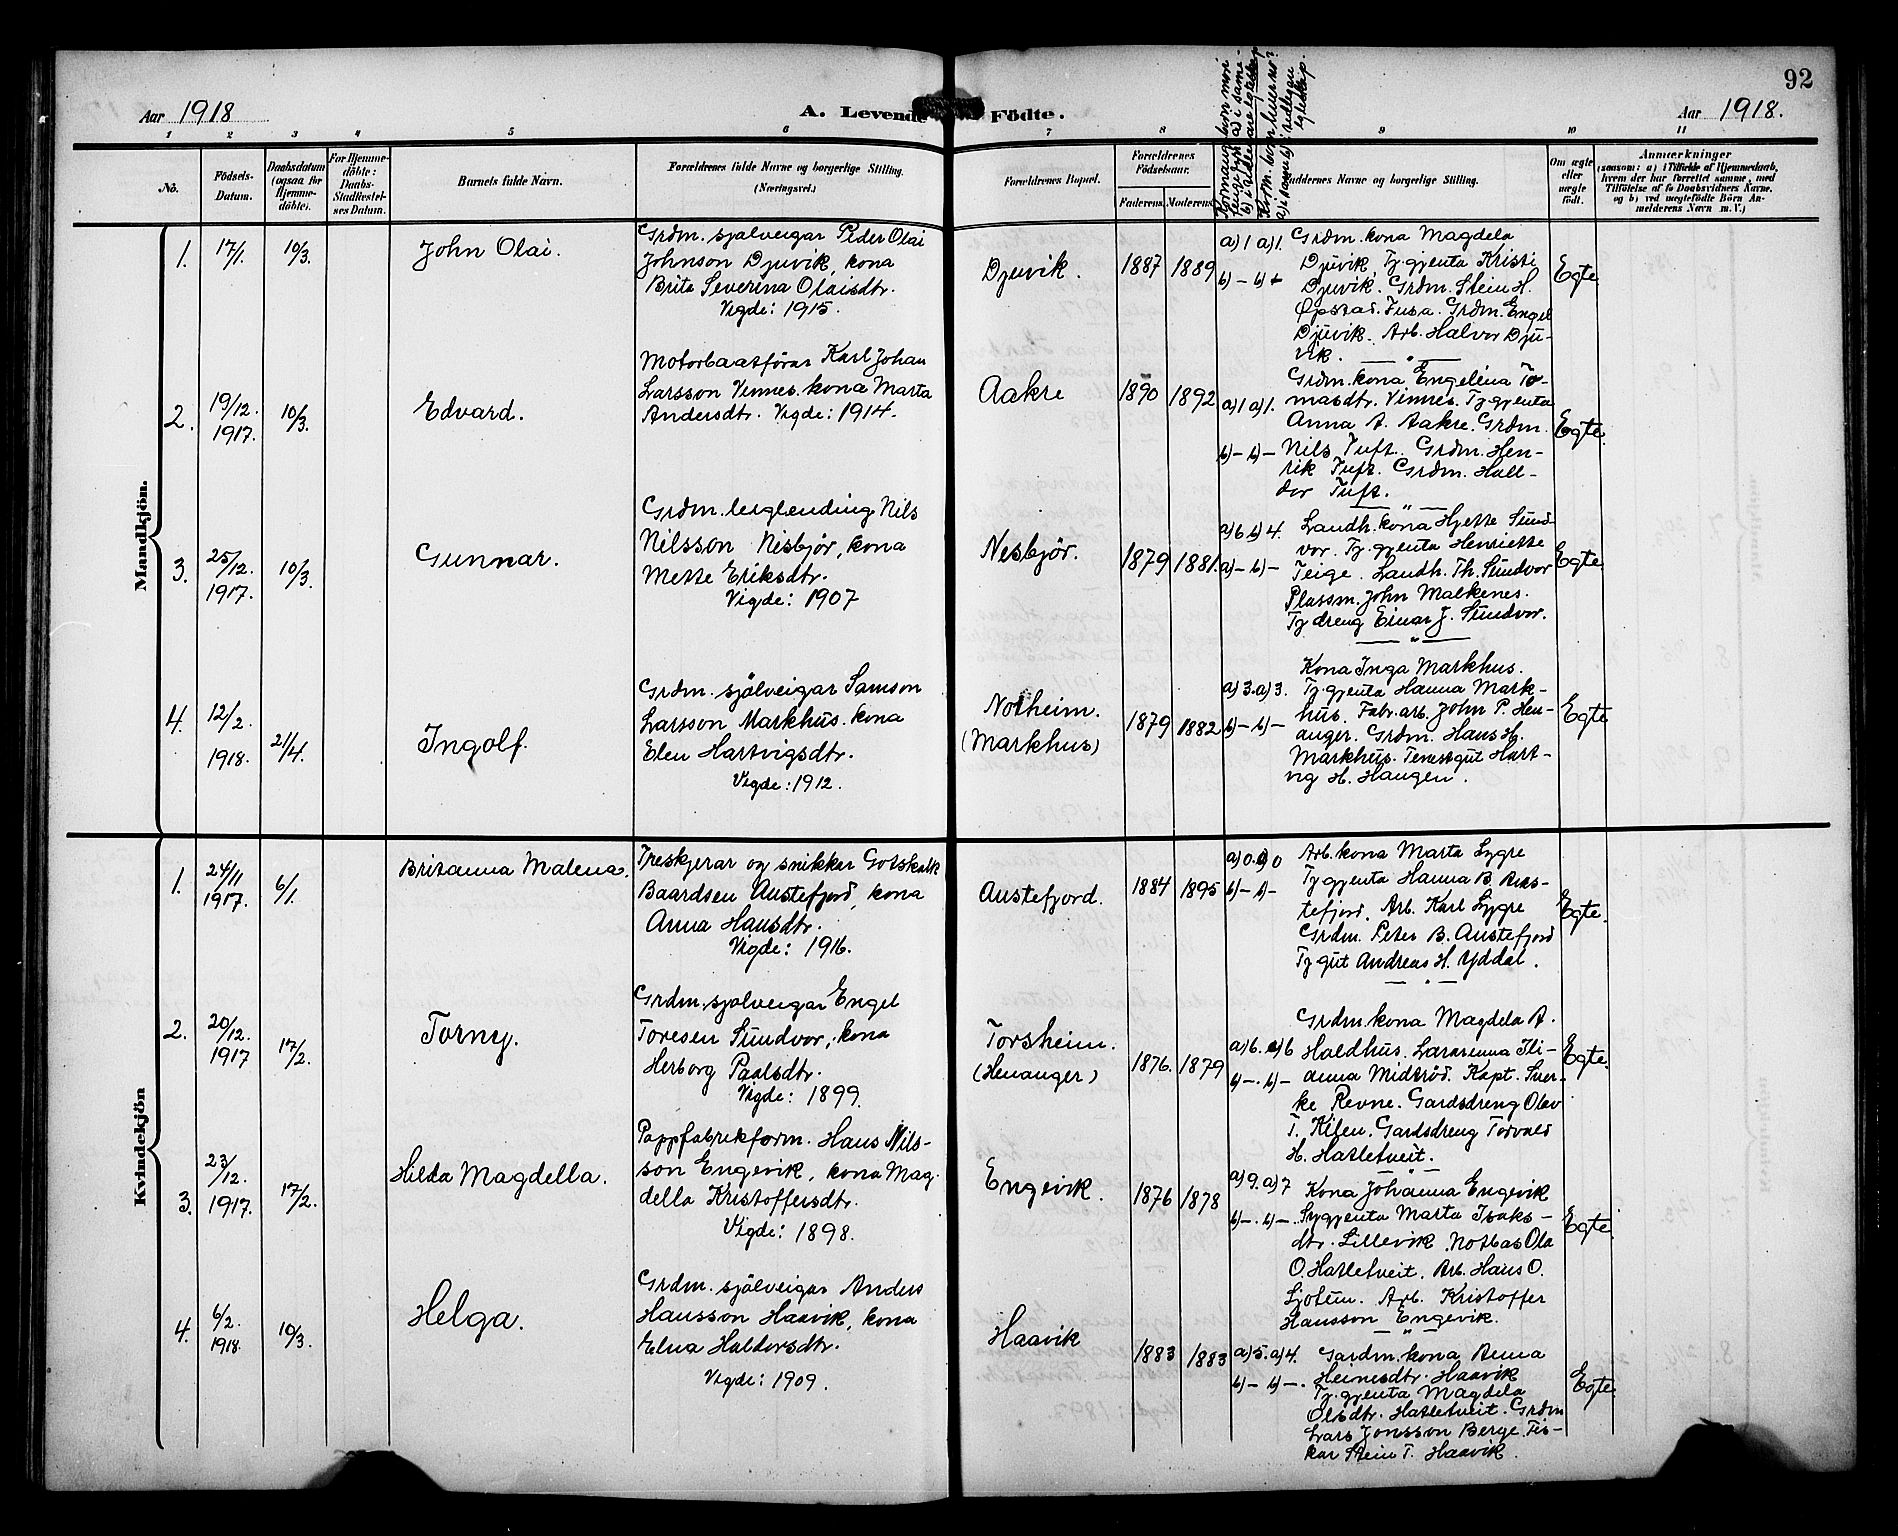 92
Aar 1918
A. Levende Födte.
Aar 1918.
1 2 3 4 5 6 7 8 9 10 11
No.
Födsels-
Datum.
Daabsdatum
(ogsaa for
Hjemme-
döbte).
For Hjemme-
döbte:
Daabs-
Stadfæstel-
ses Datum.
Barnets fulde Navn.
Forældrenes fulde Navne og borgerlige Stilling.
(Næringsvei.)
Forældrenes Bopæl.
Forældrenes
Födselsaar.
Faderens. Moderens.
Faddernes Navne og borgerlige Stilling.
Om ægte
eller
uægte
födt.
Anmærkninger
(saasom: a) i Tilfælde af Hjemmedaab,
hvem der har forrettet samme, med
Tilföielse af to Daabsvidners Navne,
og b) ved uægtefödte Börn An-
melderens Navn m. V.)
Mandkjön.
1. 17/1. 10/3.
John Olai.
Grdm. sjalveigar Peder Olai
Johnson Djuvik, kona
Brita Severina Olaisdtr.
Vigde: 1915.
Djuvik.
1887 1889
a) 1 a) 1.
b) - b) -
Grdm. kona Magdela
Djuvik, Tj. gjenta Kristi
Djuvik. Grdm. Stein H.
Opstad. Fusa. Grdm. Engel
Djuvik. Arb. Halvor Dju-
vik.
Egte
2. 19/12. 1917. 10/3.
Edvard.
Motorbaatförar Karl Johan
Larsson Vinnes. kona Marta
Andersdtr. Vigde: 1914.
Aakre
1890 1892
a) 1 a) 1.
b) - b) -
Grdm. kona Engelena To-
masdtr. Vinnes. Tj. gjenta
Anna A. Aakre. Grdm.
Nils Tuft. Grdm. Hen-
rik Tuft. Grdm. Hall-
dor Tuft.
Egte.
3. 25/12. 1917. 10/3.
Gunnar.
Grdm. leiglending Nils
Nilsson Nesbjör, kona
Mette Eriksdtr.
Vigde: 1907
Nesbjör.
1879 1881.
a) 6. b) 4.
a) - b) -
Landh. kona Hjette Sund-
vor. Tj. gjenta Henriette
Teige. Landh. Th. Sundvor
Plassm. John Malkenes.
Tj dreng Einar J. Sundvor.
Egte
4. 12/2. 1918. 21/4.
Ingolf.
Grdm. sjölveigar Samson
Larsson Markhus. kona
Elen Hartvigsdtr.
Vigde: 1912.
Notheim.
(Markhus)
1879 1882
a) 3. a) 3.
b) - b) -
Kona Inga Markhus.
Tj gjenta Hanna Mark-
hus. Fabr. arb. John P. Hen-
anger. Grdm. Hans H.
Markhus. Tenestgut Hart-
vig H. Haugen.
Egte
Kvindekjön
1. 24/11 1917. 6/1.
Britanna Malena.
Treskjerar og snikkar Gotskalk
Baardsen Austefjord, kona
Anna Hansdtr.
Vigde: 1916.
Austefjord.
1884 1895
a) 0. a) 0
b) - b) -
Arb. kona Marta Lygre
Tj gjenta Hanna B. Aus-
tefjord. Arb. Karl Lygre
Grdm. Peter B. Austefjord
Tj gut Andreas H. Yddal.
Egte.
2. 20/12. 1917 17/2.
Torny.
Grdm. sjolveigar Engel
Toresen Sundvor, kona
Herborg Paalsdtr.
Vigde: 1899.
Torsheim.
(Henanger)
1876. 1879
a) 6. a) 6
b) -. b) -
Grdm. kona Magdela A.
Haldhus. Lararenna Ili-
anna Midtröd. Kapt. Sver-
ke Revne. Gardsdreng Olav
T. Kilen. Gardsdreng Torvald
H. Hatletveit.
Egte.
3. 23/12. 1917. 17/2.
Hilda Magdella.
Pappfabrikform. Hans Nils-
son Engevik, kona Mag-
della Kristoffersdtr.
Vigde: 1898.
Engevik.
1876 1878
a) 9. a) 7
b) -. b) -.
Kona Johanna Engevik
Sygjenta Marta Isaks-
dtr. Lillevik. Notbas Ola
O. Hatletveit. Arb. Hans O.
Ljotun. Arb. Kristoffer
Hansson Engevik.
Egte.
4. 6/2. 1918. 10/3.
Helga.
Grdm. sjölveigar Anders
Hansson Haavik, kona
Elna Haldorsdtr.
Vigde: 1909.
Haavik
1883 1883
a) 5. a) 4.
b) - b) -.
Gardm. kona Anna
Heinesdtr. Haavik
Tj. gjenta Magdela
Olsdtr. Hatletveit. Grdm
Lars Jonsson Berge. Fis-
kar Stein T. Haavik.
Egte.